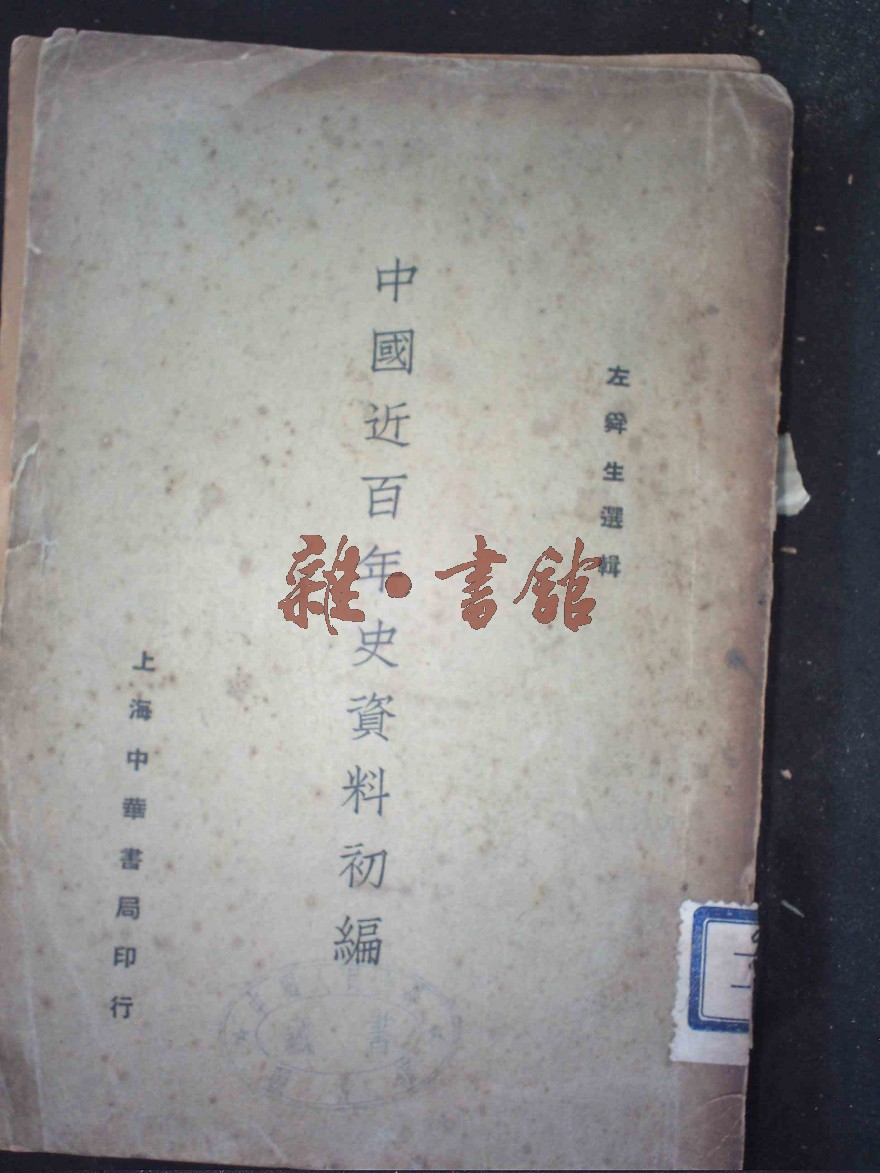 左舜生選輯
中國近百年史資料初編
上海中華書局印行
雜·書館
藏書